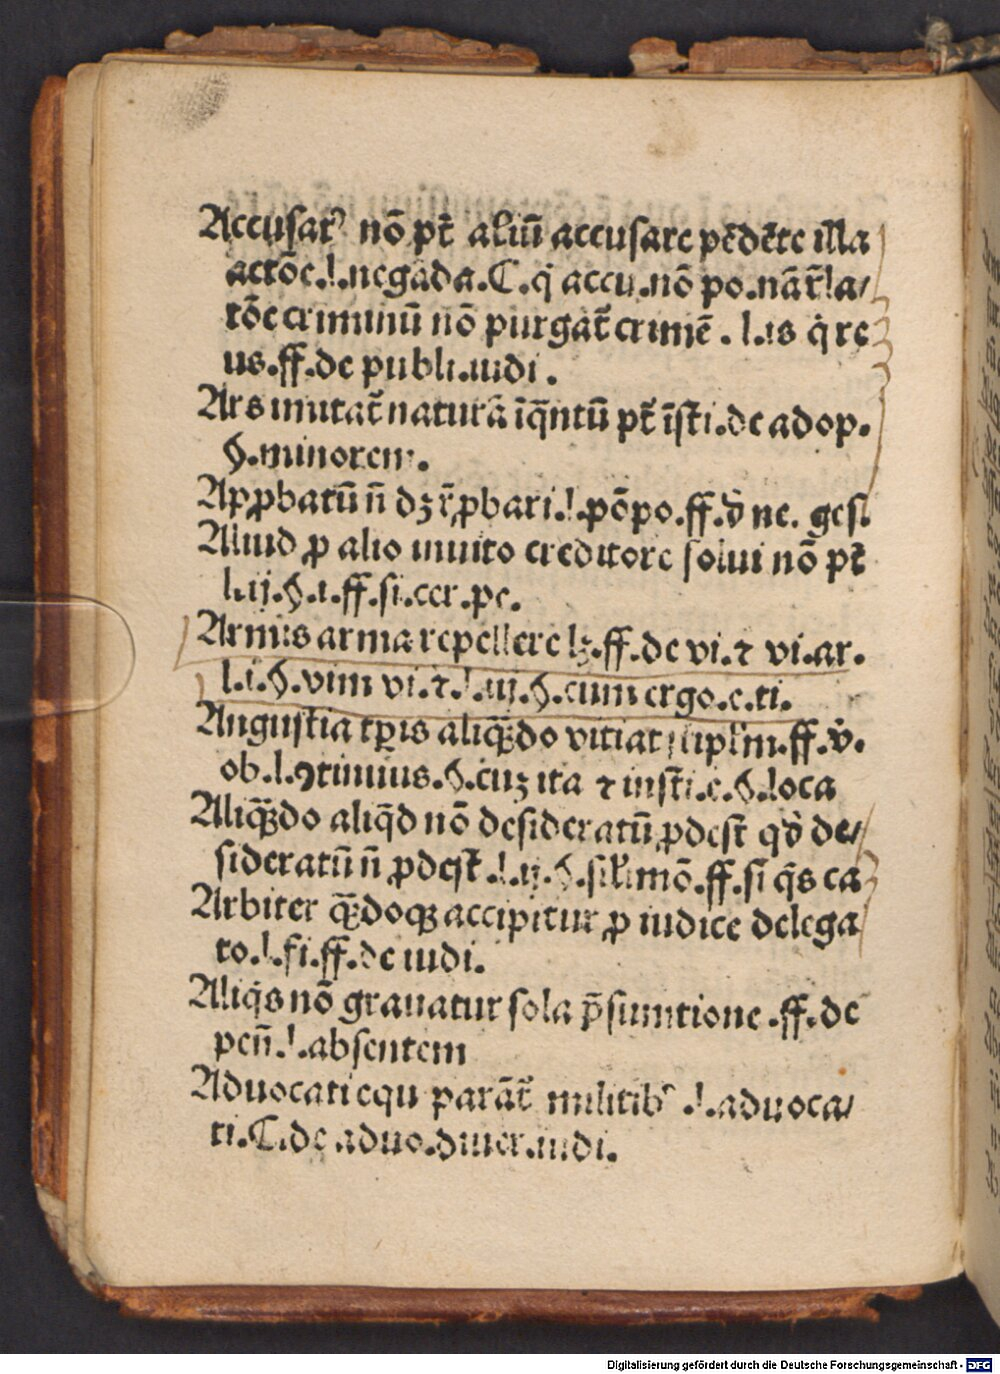 Accusatꝰ nō pt̄ aliū accusare pēdēte illa
actōe .l. negāda. C. q̇ accu. nō po. nā r̄la/
tōe criminū nō purgat̄ crimē . l. is q̇ re
us. ff. de publi. iudi .
Ars imitat̄ naturā īq̄ntū pt̄ īsti. de adop.
§. minorem .
Apꝓbatū n̄ dꝫ r̄ꝓbari. l. pōpo. ff. d̄ ne. gesl.
Aliud ꝓ alio inuito creditore solui nō pt̄
l. ij. §. i. ff. si. cer. pe.
Armis arma repellere lꝫ. ff. de vi. ⁊ vi. ar.
l. i. §. vim vi. ⁊. l. iij. §. cum ergo. e. ti.
Angustia tꝑis aliqn̄do vitiat stipl̄m. ff. v̇.
ob. l. ꝯtinuus. §. cuꝫ ita ⁊ insti. e. §. loca
Aliqn̄do aliq̇d nō desideratū ꝓdest qd̄ de/
sideratū n̄ ꝓdest̄ . l. ij. §. sil̄i mō. ff. si q̇s ca
Arbiter qn̄doqꝫ accipitur ꝓ iudice delega
to. l. fi. ff. de iudi.
Aliq̇s nō grauatur sola p̄sumtione . ff. de
pen̄. l. absentem
Aduocati equ parāt̄ militibꝰ . l. aduoca/
ti. C. de aduo. diuer. iudi.
Digitalisierung gefördert durch die Deutsche Forschungsgemeinschaft - DFG